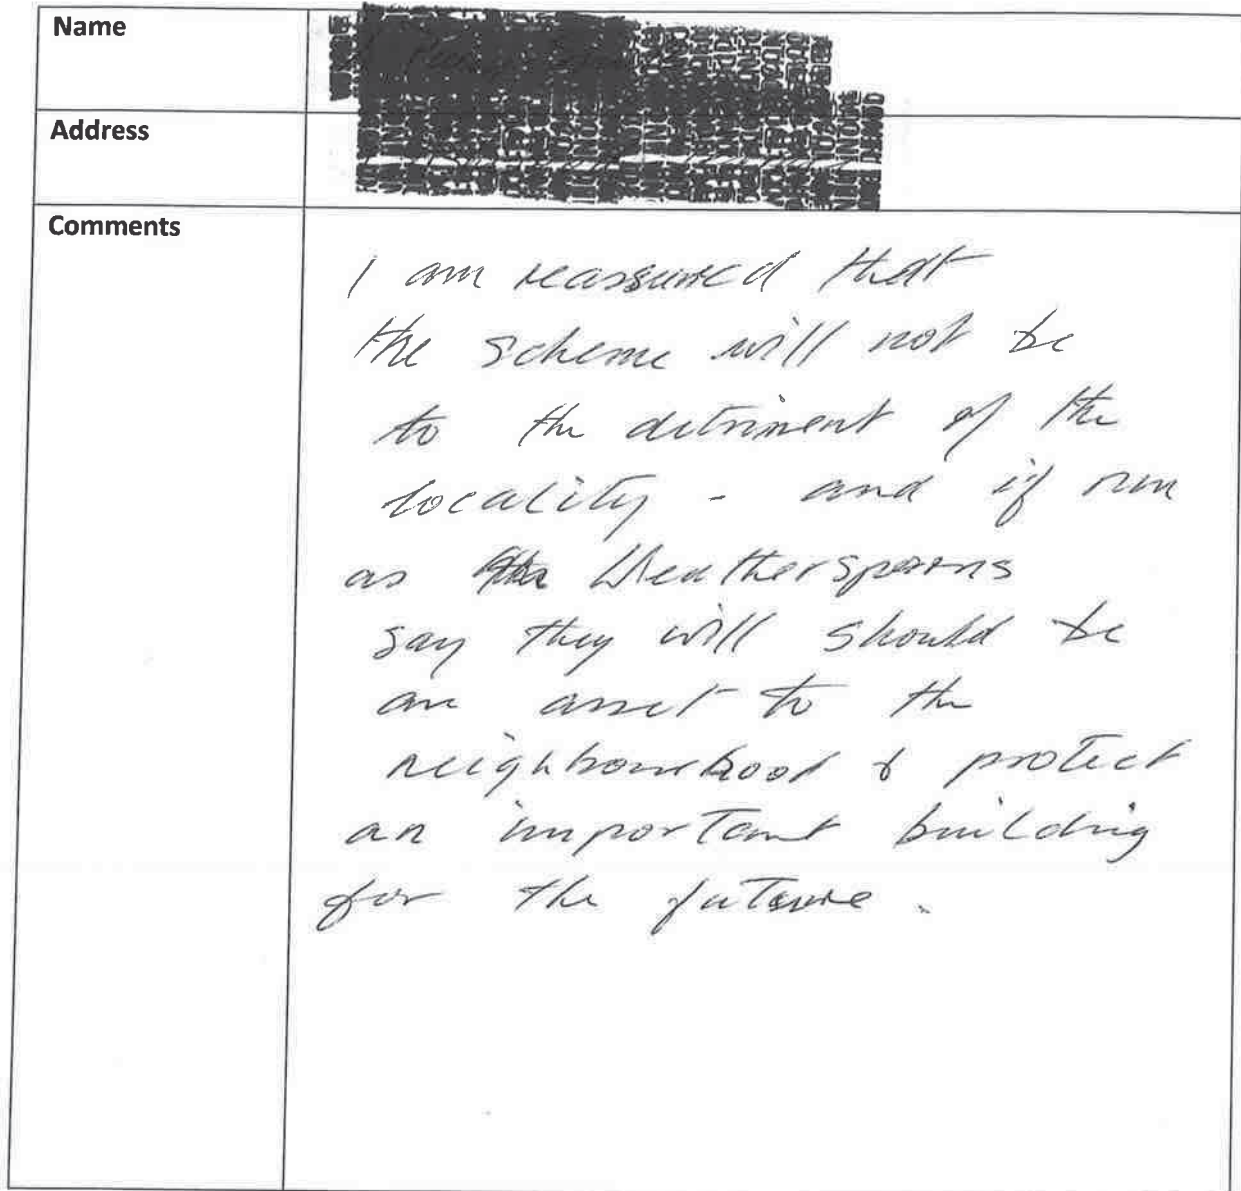 Name
Address
Comments
I am reassured that
the scheme will not be
to the detriment of the
locality - and if run
as Weatherspoons
say they will should be
an asset to the
neighbourhood & protect
an important building
for the future.